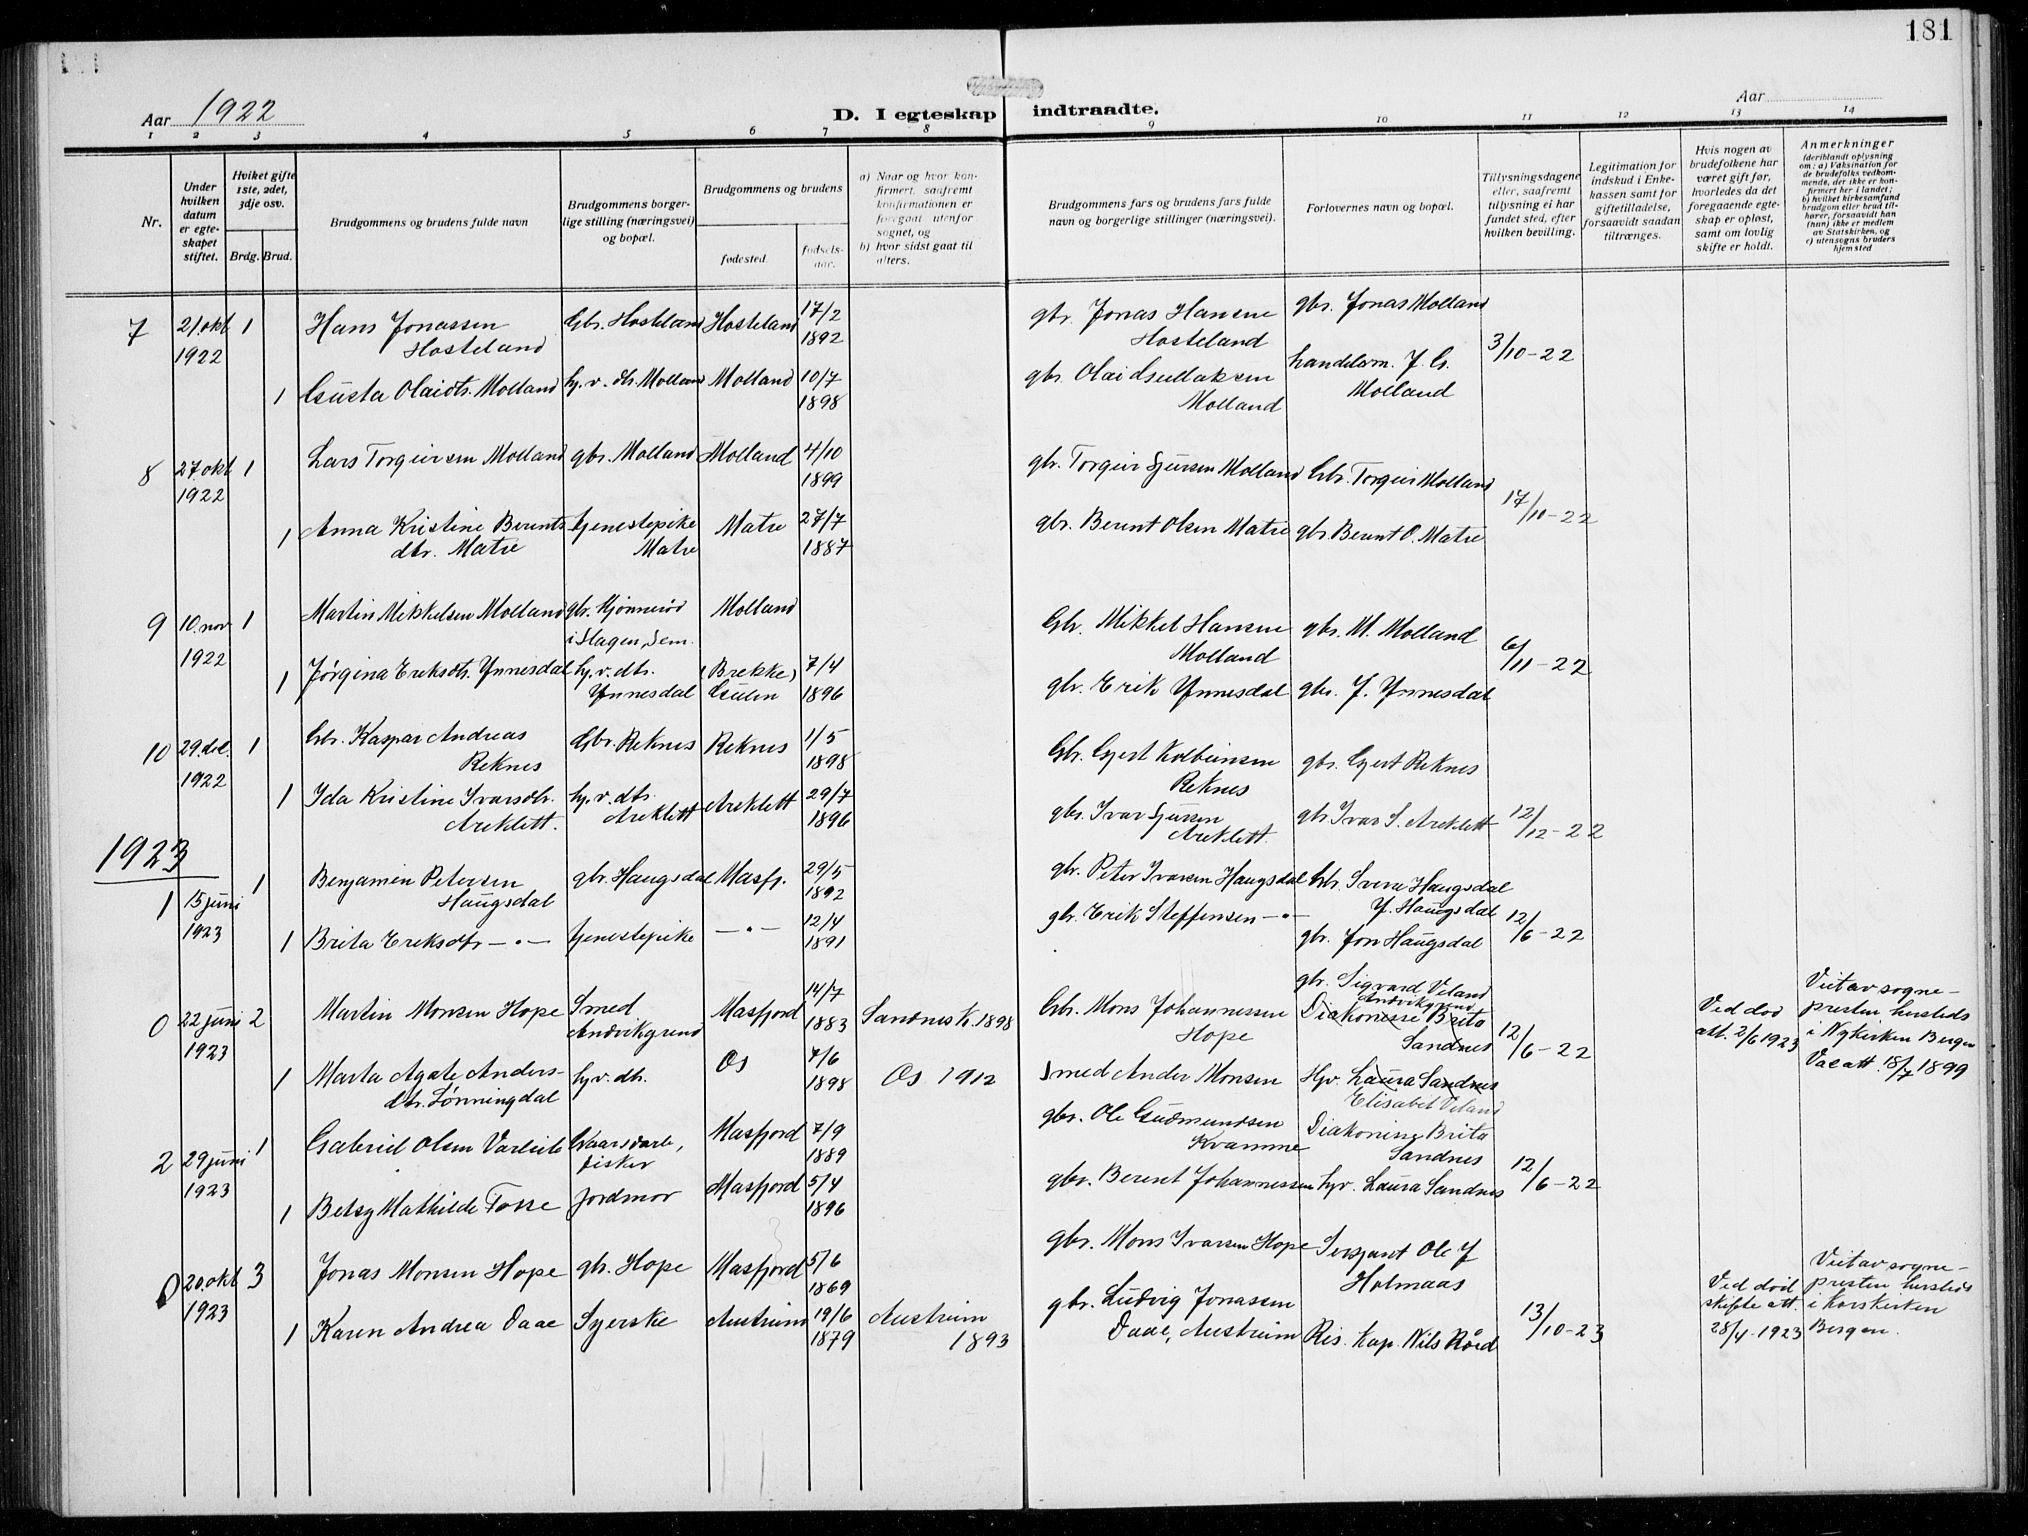 181
Aar 1922
D. I egteskap indtraadte.
Aar
1 2 3 4 5 6 7 8 9 10 11 12 13 14
Nr.
Under
hvilken
datum
er egte-
skapet
stiftet.
Hviket gifte
1ste, 2det,
3dje osv.
Brdg. Brud.
Brudgommens og brudens fulde navn
Brudgommens borger-
lige stilling (næringsvei)
og bopæl.
Brudgommens og brudens
fødested.
fødsels-
aar.
a) Naar og hvor kon-
firmert, saafremt
konfirmationen er
foregaat utenfor
sognet, og
b) hvor sidst gaat til
alters.
Brudgommens fars og brudens fars fulde
navn og borgerlige stillinger (næringsvei).
Forlovernes navn og bopæl.
Tillysningsdagene
eller, saafremt
tillysning ei har
fundet sted, efter
hvilken bevilling.
Legitimation for
indskud i Enke-
kassen samt for
giftetilladelse,
forsaavidt saadan
tiltrænges.
Hvis nogen av
brudefolkene har
været gift før,
hvorledes da det
foregaaende egte-
skap er opløst,
samt om lovlig
skifte er holdt.
Anmerkninger
(deriblandt oplysning
om: a) Vaksination for
de brudefolks vedkom-
mende, der ikke er kon-
firmert her i landet;
b) hvilket kirkesamfund
brudgom eller brud til-
hører, forsaavidt han
(hun) ikke er medlem
av Statskirken, og
c) utensogns bruders
hjemsted
7 21 okt 1922 1 Hans Jonassen Hosteland Gbr. Hosteland Hosteland 17/2 1892 gbr. Jonas Hansen Hosteland gbr. Jonas Molland 3/10-22
1 Gusta Olaidtr. Molland hj. v. dtr. Molland Molland 10/7 1898 gbr. Olai Molland handelsm. J. G. Molland
8 27. okt 1922 1 Lars Torgeirsen Molland gbr. Molland Molland 4/10 1899 gbr. Torgeir Sjursen Molland Gbr. Torgeir Molland 17/10-22
1 Anna Kristine Berents dtr. Matre tjenestepike Matre Matre 27/7 1887 gbr. Berent Olsen Matre gbr. Berent O. Matre
9 10. nov 1922 1 Martin Mikkelsen Molland gbr. i Slagen, Sem. Molland Gbr. Mikkel Hansen Molland gbr. M. Molland 6/11-22
1 Jørgina Eriksdtr. Ynnesdal hj. v. dtr. Ynnesdal (Brekke) Gulen 7/4 1896 gbr. Erik Ynnesdal gbr. J. Ynnesdal
10 29. des. 1922 1 Gbr. Kaspar Andreas Reknes Gbr. Reknes Reknes 1/5 1898 Gbr. Gjert Kolbeinsen Reknes gbr. Gjert Reknes 12/12-22
1 Ida Kristine Ivarsdtr. Areklett. hj. v. dtr. Areklett Areklett 29/7 1896 gbr. Ivar Sjursen Areklett. gbr. Ivar S. Areklett
1923
1 15 juni 1923 1 Benjamin Petersen Haugsdal gbr. Haugsdal Masfj. 29/5 1892 gbr. Peter Ivarsen Haugsdal Gbr. Haugsdal Y. Haugsdal 12/6-22
1 Brita Eriksdtr — " — tjenestepike — " — 12/4 1891 gbr. Erik Steffensen — " — gbr. Jon Haugsdal
0 22 juni 1923 2 Martin Monsen Hope Smed Andvikgrend Masfjord 14/7 1883 Sandnes K. 1898 Gbr. Mons Johannessen Hope gbr. Sigvard Veland Andvikgrend Diakonesse Brita Sandnes 12/6-22 Ved død att. 2/6 1923 Viet av sogne-presten hersteds i Nykirken Bergen Vac att. 18/7 1899
1 Marta Agate Anders-dtr. Lønningdal hj. v. dtr. Os 7/6 1898 Os 1912 Smed Ander Monsen Hjv. Laura Sandnes Elisabet Veland
2 29 juni 1923 1 Gabriel Olsen Varleite fisker Masfjord 7/9 1889 gbr. Ole Gudmundsen Kvamme Diakonisse Brita Sandnes 12/6-22
1 Betsy Mathilde Tosse Jordmor Masfjord 5/4 1896 gbr. Berent Johannessen hjv. Laura Sandnes
0 20. okt 1923 3 Jonas Monsen Hope gbr. Hope Masfjord 5/6 1869 gbr. Mons Ivarsen Hope Sersjant Ole J Holmaas 13/10-23 Ved død skifte att. 28/4-1923 Viet av sogne-presten hersteds i Korskirken Bergen.
1 Karen Andrea Daae Syerske Austrheim 19/6 1879 Austrheim 1893 gbr. Ludvig Jonassen Daae, Austrheim Res. Kap. Nils